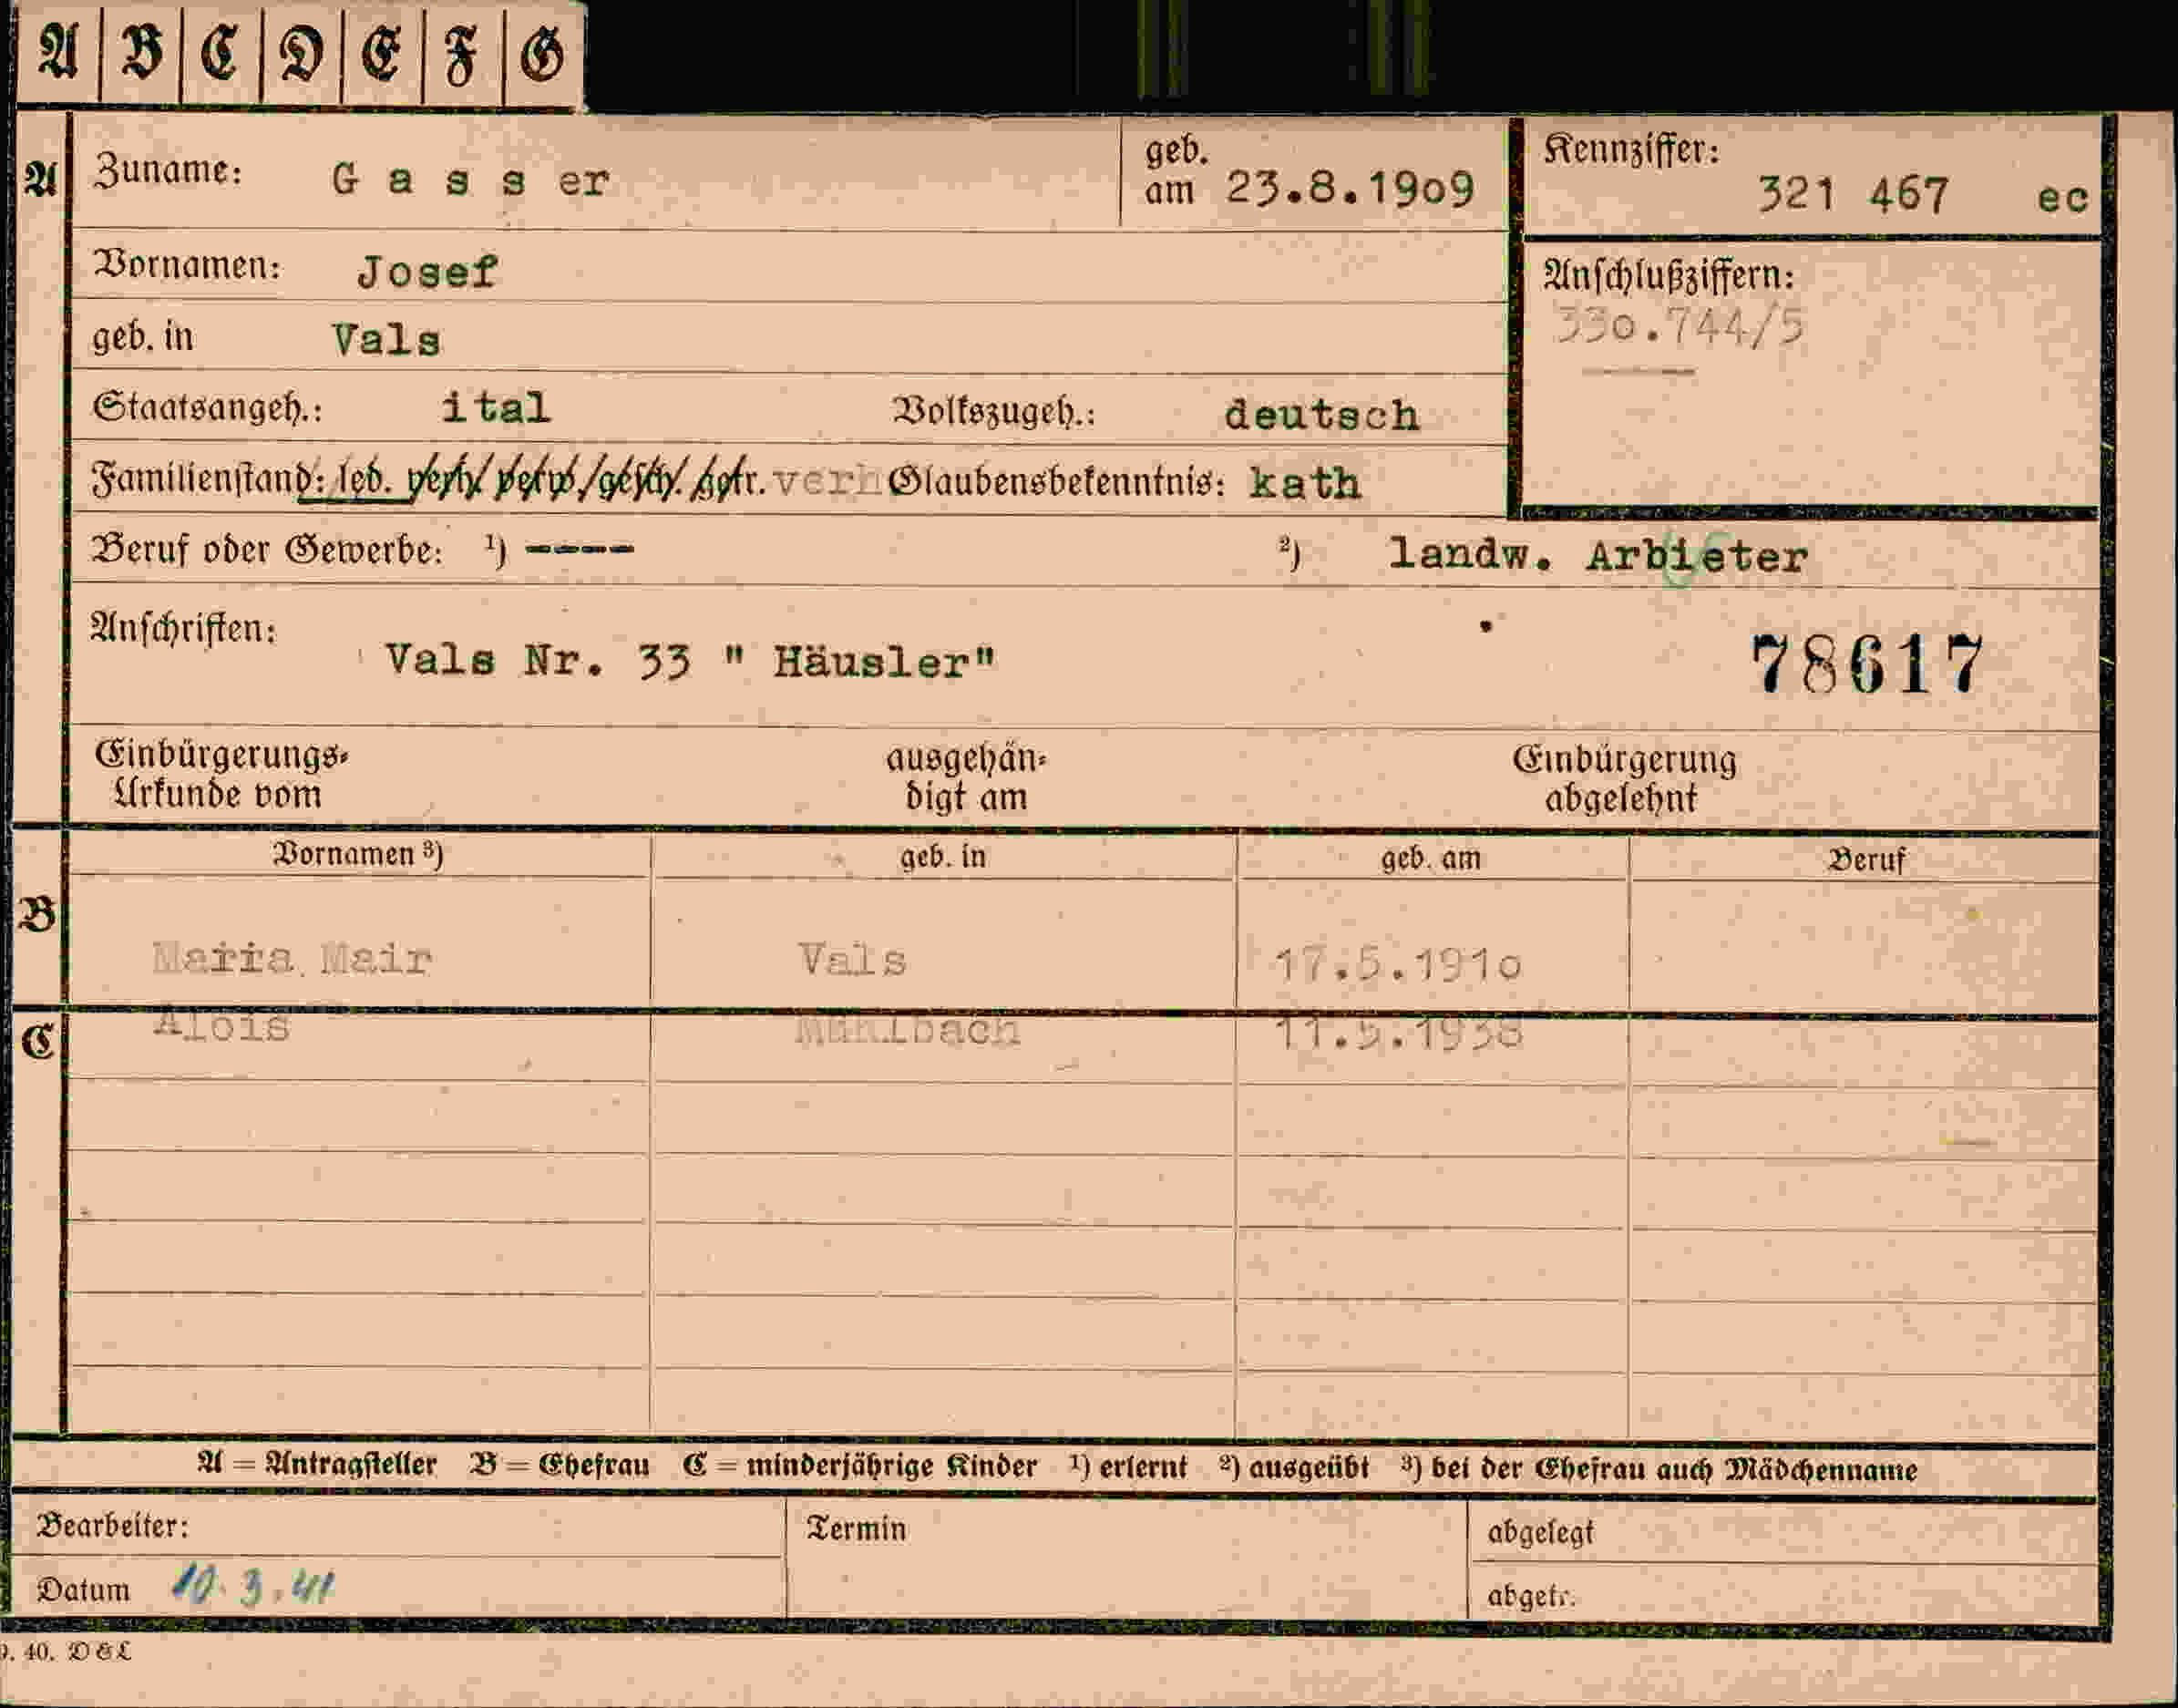 A B C D E F G
A Zuname: Gasser geb. am 23.8.1909 Kennziffer: 321 467 ec
Vornamen: Josef Anschlußziffern:
330.744/5
geb. in Vals
Staatsangeh.: ital Volkszugeh.: deutsch
Familienstand: led. verh. verw. gesch. getr. verh Glaubensbekenntnis: kath
Beruf oder Gewerbe: ¹) ---- ²) landw. Arbieter
Anschriften: Vals Nr. 33 " Häusler" 78617
Einbürgerungs- ausgehän- Einbürgerung
Urkunde vom digt am abgelehnt
Vornamen ³) geb. in geb. am Beruf
B
Maria Mair Vals 17.5.1910
C Alois Mühlbach 11.5.1938
A = Antragsteller B = Ehefrau C = minderjährige Kinder ¹) erlernt ²) ausgeübt ³) bei der Ehefrau auch Mädchenname
Bearbeiter: Termin abgelegt
Datum 10.3.41 abgetr.
40. D&L